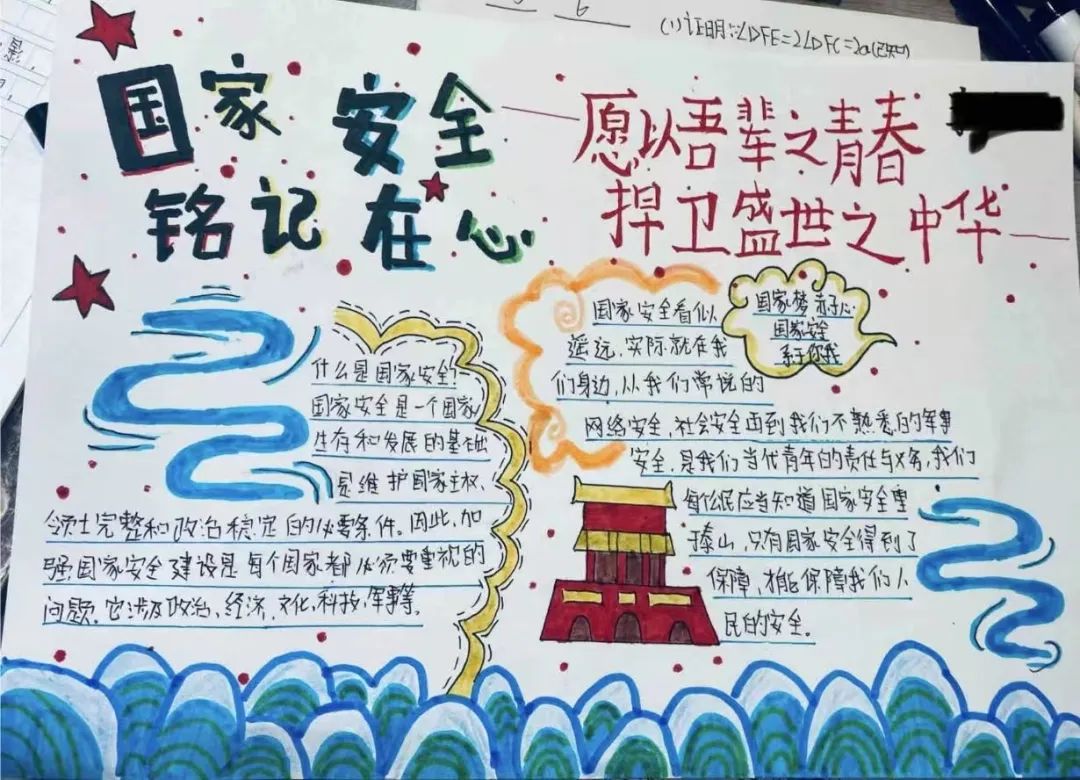 (1)证明:∵∠DFE=2∠DFC=2α(已知)
国家安全
铭记在心
愿以吾辈之青春
捍卫盛世之中华
什么是国家安全?
国家安全是一个国家
生存和发展的基础
是维护国家主权、
领土完整和政治稳定的必要条件。因此,加
强国家安全建设是每个国家都必须要重视的
问题。它涉及政治、经济、文化,科技,军事等。
国家安全看似
遥远,实际就在我
们身边,从我们常说的
网络安全,社会安全再到我们不熟悉的军事
安全,是我们当代青年的责任与义务,我们
每个公民应当知道国家安全重
于泰山,只有国家安全得到了
保障,才能保障我们人
民的安全。
国家梦 赤子心
国家安全
系于你我